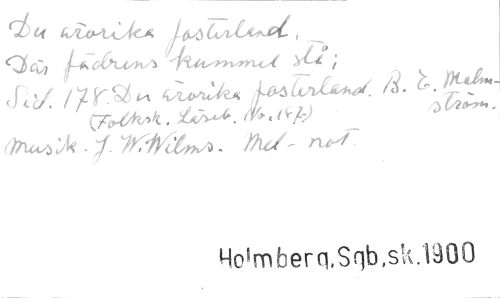 Du ärorika fosterland,
Där fädrens kummel stå;
Sid. 178. Du ärorika fosterland. B. E. Malm-
ström.
(Folksk. Läseb. No. 187.)
Musik. J. W. Wilms. Mel- not.
Holmberg, Sgb, sk. 1900